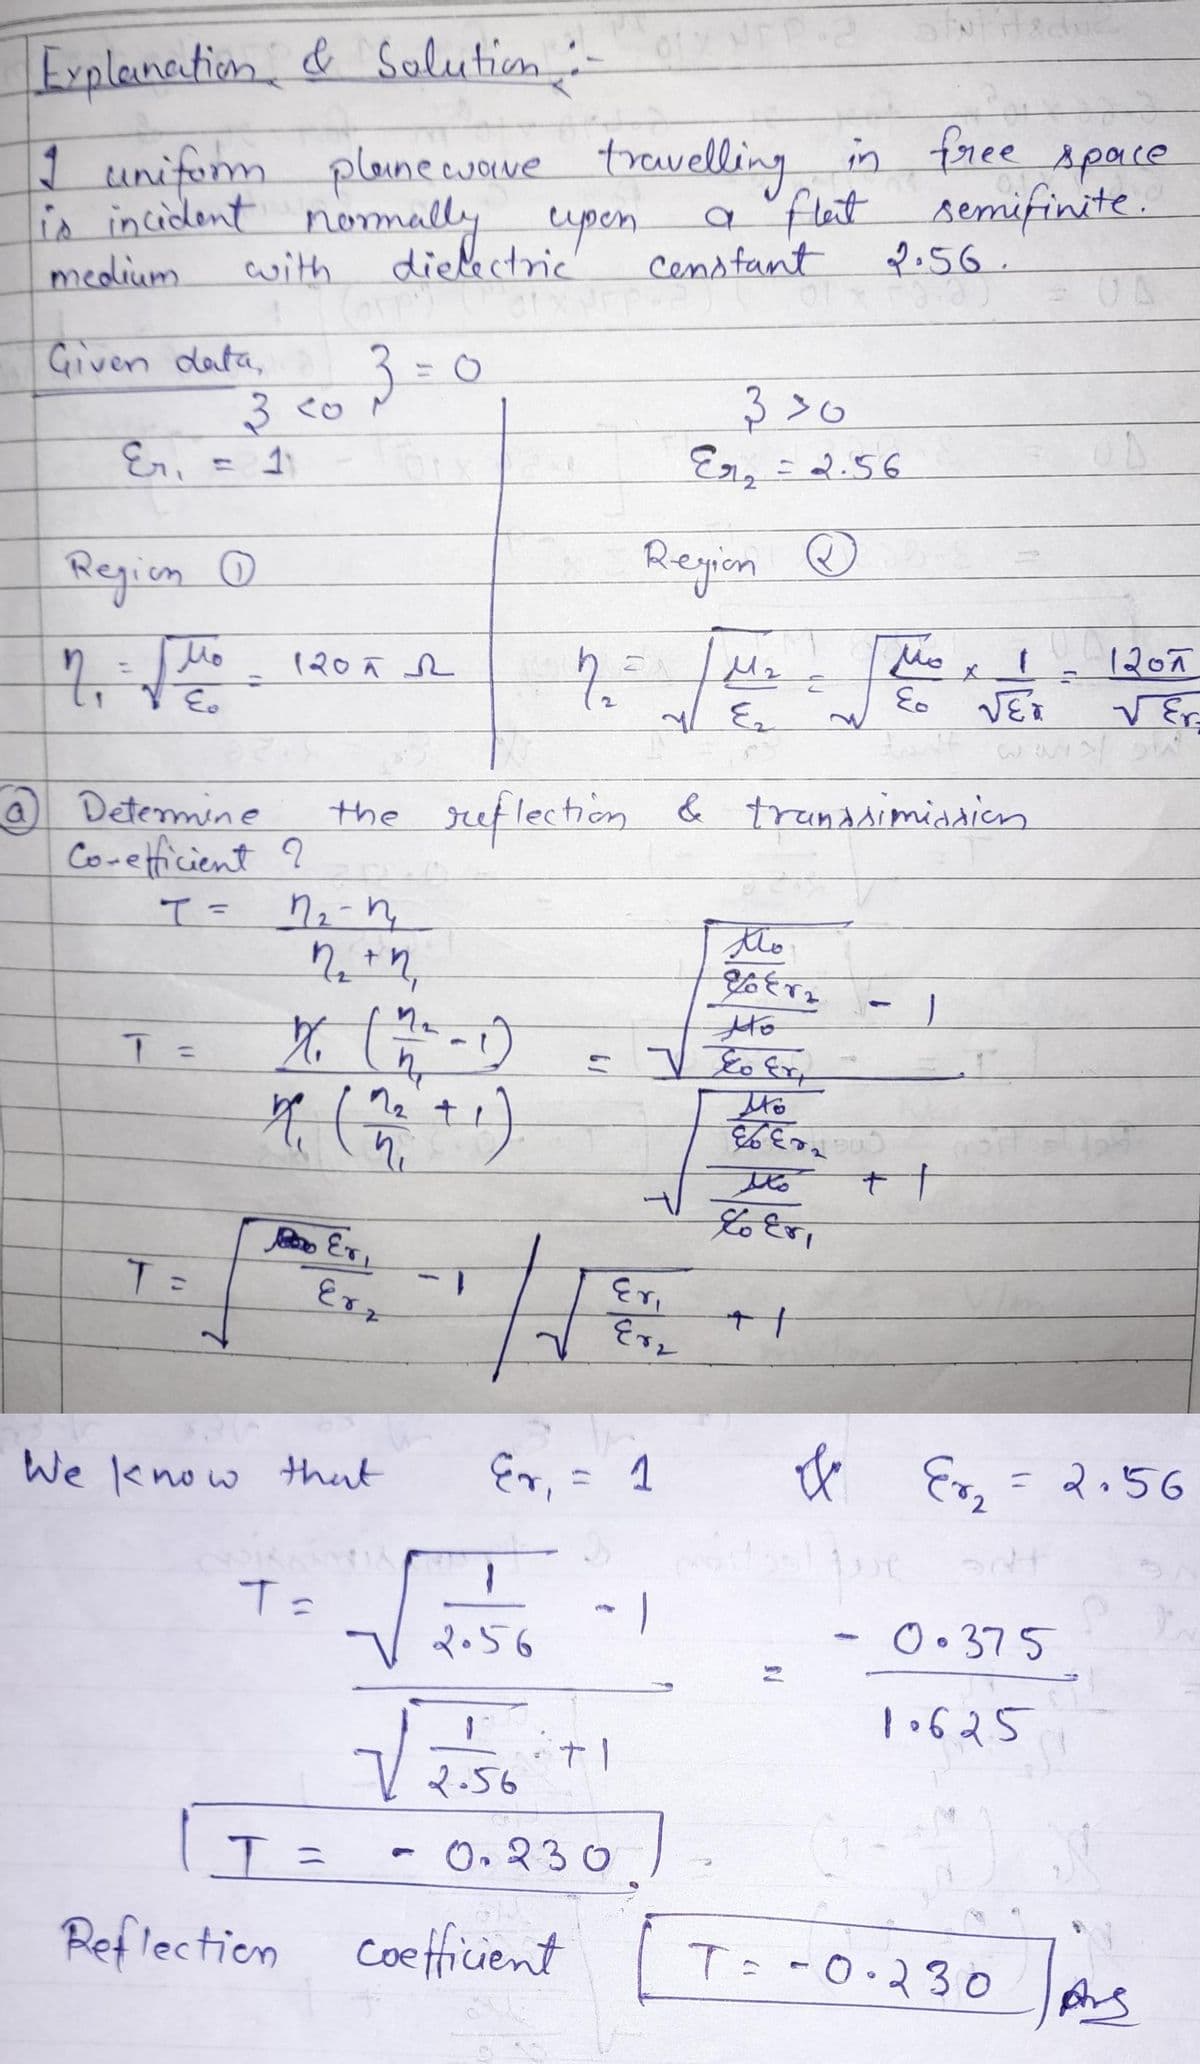 Explanation & Solution :-
1 uniform plane wave travelling in free space
is incident normally upon a flat semifinite.
medium with dielectric constant 2.56.
Given data, z = 0
z < 0
z > 0
Er₁ = 1
Er₂ = 2.56
Region ①
Region ②
η₁ = √(μ₀/ε₀) = 120π Ω
η₂ = √(μ₂/ε₂) = √(μ₀/ε₀) × 1/√εr = 120π/√εr₂
ⓐ Determine the reflection & transsimission
Co-efficient ?
T = (η₂ - η₁)/(η₂ + η₁)
T = η₁(η₂/η₁ - 1)/η₁(η₂/η₁ + 1) = (√((μ₀/ε₀εr₂)/(μ₀/ε₀εr₁)) - 1)/(√((μ₀/ε₀εr₂)/(μ₀/ε₀εr₁)) + 1)
T = √(εr₁/εr₂) - 1 / √(εr₁/εr₂) + 1
We know that Er₁ = 1 & Er₂ = 2.56
T = (√(1/2.56) - 1)/(√(1/2.56) + 1) = - 0.375/1.625
T = - 0.230
Reflection coefficient T = - 0.230 Ans